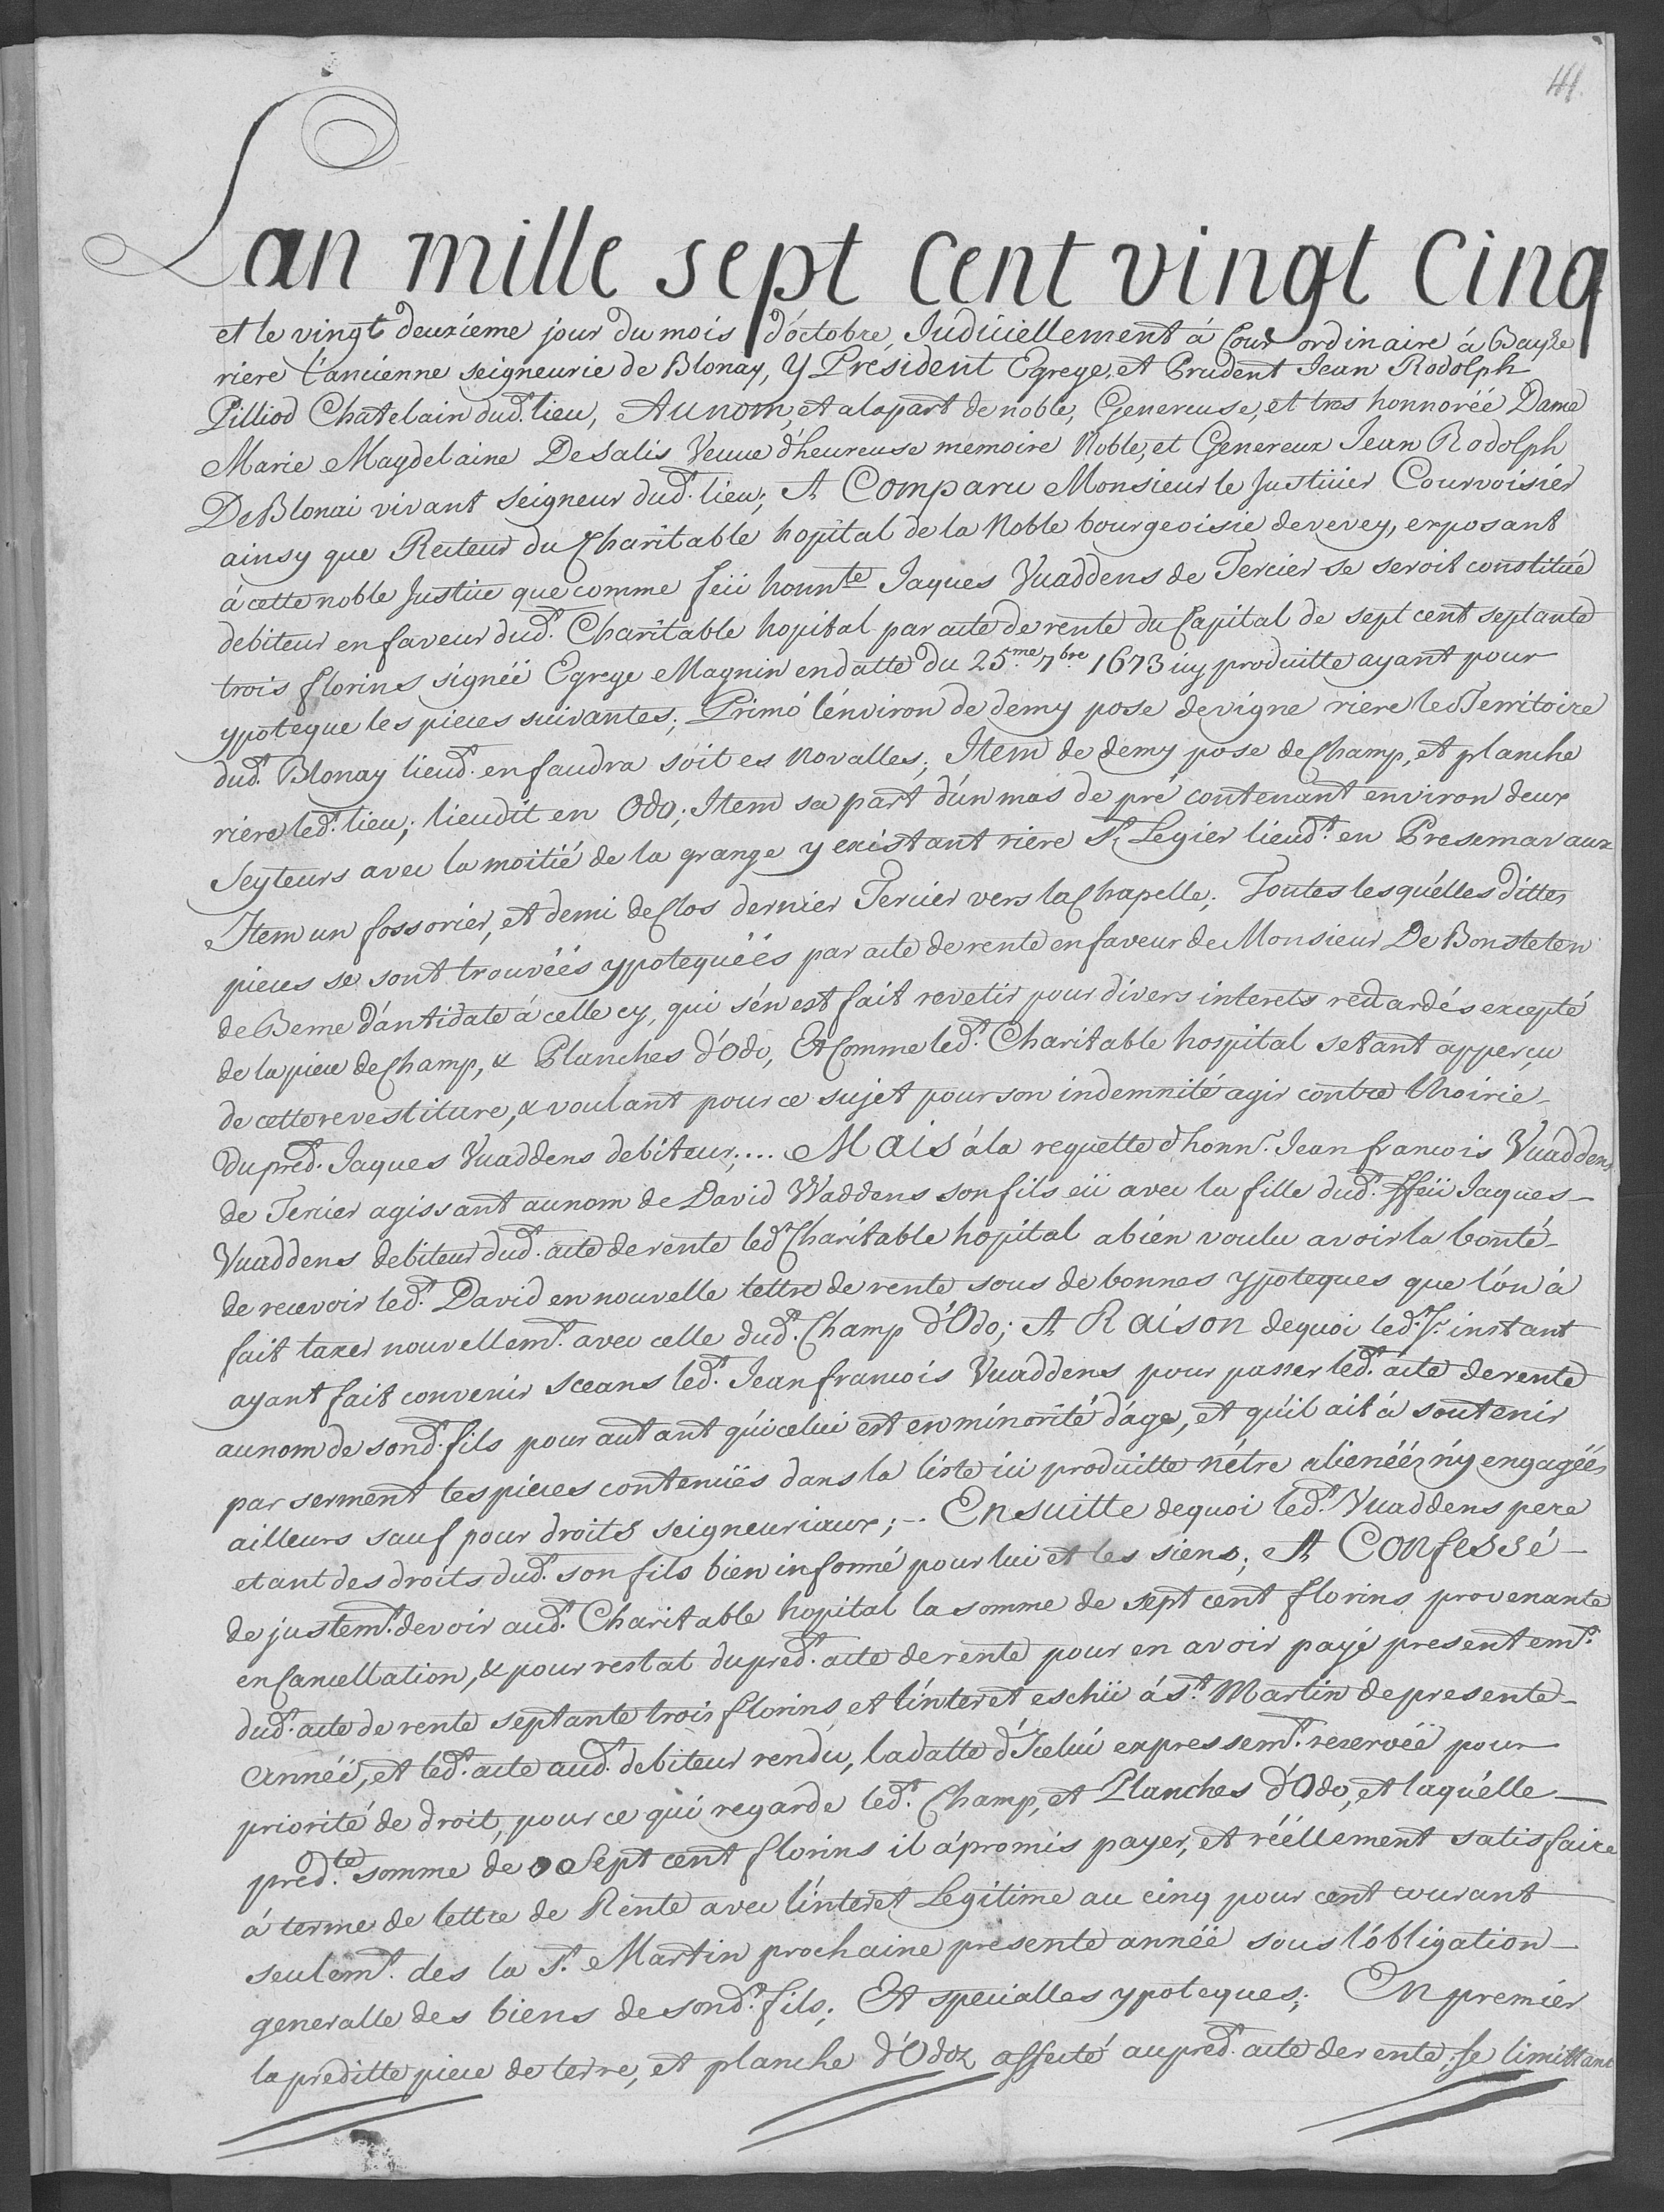 41.
Lan mille sept cent vingt cinq
et le vingt deuxiéme jour du mois d'octobre, Judiciellement à Cour ordinaire à Bayse
riere l'anciénne seigneurie de Blonay, Y Président Egrege, et Prudent Jean Rodolph
Pilliod Chatelain dud.t lieu, Au nom, et a la part de noble, Genereuse, et tres honnoréé Dame
Marie Magdelaine De Salis Veuue d'heureuse memoire Noble, et Genereux Jean Rodolph
De Blonai vivant Seigneur dud.t lieu; A Comparu Monsieur le Justicier Courvoisiér
ainsy que Recteur du Charitable hopital de la Noble bourgeoisie de vevey, exposant
à cette noble Justice que comme feii honn.te Jaques Vuaddens de Tercier se seroit constitué
debiteur en faveur dud.t Charitable hopital par acte de rente du Capital de sept cent septante
trois florins signéé Egrege Magnin en datte du 25.me 7.bre 1673 icy produitte ayant pour
ypoteque les pieces suivantes; Primó l'énviron de demy pose de vigne riere le Territoire
dud.t Blonay lieud.t en faudra soit es Novalles; Item de demy pose de Champ, et planche
riere led.t lieu; lieudit en Odo; Item sa part d'ún mas de pré contenant environ deux
Seyteurs avec la moitié de la grange y existant riere S.t Legier lieud.t en Presemavaux
Item un fossoriér, et demi de Clos dernier Tercier vers la Chapelle; Toutes lesquélles dittes
pieces se sont trouvéés ypotequéés par acte de rente en faveur de Monsieur De Bonsteten
de Berne d'antidate à celle cy, qui s'én est fait revetir pour divers interets retardés excepté
de la piece de Champ, & Planches d'Odo, Et Comme led.t Charitable hospital setant apperçu
de cette revestiture, & voulant pour ce sujet pour son indemnité agir contre l'hoirie
du préd.t Jaques Vuaddens debiteur;... Mais à la requette d'honn.r Jean francois Vuaddens
de Tercier agissant au nom de David Waddens son fils eii avec la fille dud.t ffeii Jaques
Vuaddens debiteur dud.t acte de rente led.t Charitable hopital a bién voulu avoir la bonté
de recevoir led.t David en nouvelle lettre de rente sous de bonnes ypoteques que l'ón à
fait taxer nouvellem.t avec celle dud.t Champ d'Odo; A Raison dequoi led.t S.r instant
ayant fait convenir sceans led.t Jean francois Vuaddens pour passer led.t acte de rente
au nom de sond.t fils pour autant qu'icelui est en minorité d'áge, et qu'il ait à soutenir
par serment les pieces contenuës dans la liste ici produitte n'étre alienéés n'ÿ engagéés
ailleurs sauf pour droits seigneuriaux; -- En suitte dequoi led.t Vuaddens pere
etant des droits dud.t son fils bien informé pour lui et les siens; A Confessé
de justem.t devoir aud.t Charitable hopital la somme de sept cent florins provenante
en Cancellation, & pour restat dupréd.t acte de rente pour en avoir payé presentem.t
dud.t acte de rente septante trois florins et l'ínteret eschii à S.t Martin de presente
Annéé, et led.t acte aud.t debiteur rendu, la datte d'Icelui expressem.t reservéé pour
priorité de droit, pour ce qui regarde led.t Champ, et Planches d'Odo, et laquélle
préd.te somme de Sept cent florins il à promis payer, et réellement satisfaire
à terme de lettre de Rente avec l'ínteret Legitime au cinq pour cent courant
seulem.t des la S.t Martin prochaine presente annéé sous l'óbligation
generalle des biens de sond.t fils; Et specialles ypoteques; En premiér
la preditte piece de terre, et planche d'Odoz affecté aupréd.t acte de rente; se limittant